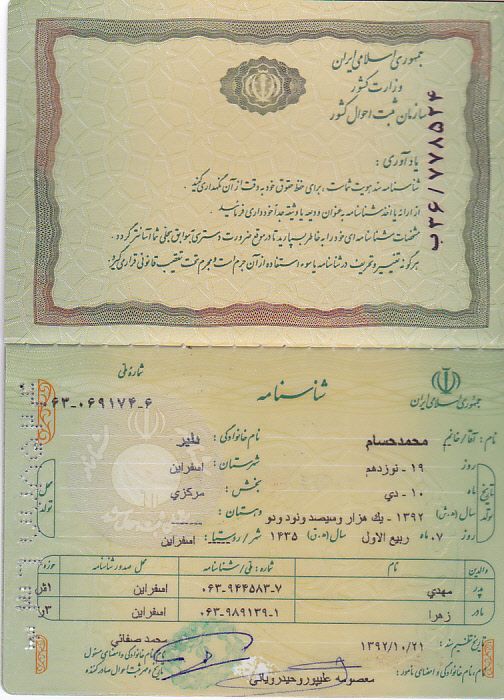 جمهوری اسلامی ایران
وزارت کشور
سازمان ثبت احوال کشور
ب۳۶/۷۷۸۵۲۴
یادآوری :
شناسنامه سند هویت شماست ، برای حفظ حقوق خود به دقت از آن نگهداری کنید .
از ارائه یا اخذ شناسنامه به عنوان ودیعه یا وثیقه جداً خودداری فرمائید .
مشخصات شناسنامه ای خود را به خاطر بسپارید تا در موقع ضرورت دسترسی به سوابق سجلی شما آسانتر گردد .
هرگونه تغییر و تحریف در شناسنامه یا سوء استفاده از آن جرم است و مجرم تحت تعقیب قانونی قرار می گیرد .
جمهوری اسلامی ایران
شناسنامه
شماره ملی
۰۶۳-۰۶۹۱۷۴-۶
نام : آقا / خانم محمدحسام نام خانوادگی :
روز ۱۹ - نوزدهم شهرستان : اسفراین
ماه ۱۰ - دي بخش : مرکزي
تولد
سال (ه.ش) ۱۳۹۲ - یك هزار وسیصد ونود ودو دهستان : -----
روز ۰۷ ماه ربیع الاول سال (ه.ق) ۱۴۳۵ شهر / روستا : اسفراین
محل تولد
والدین نام شماره : ملی / شناسنامه محل صدور شناسنامه حوزه
پدر مهدي ۰۶۳-۹۴۴۵۸۳-۷ اسفراین
مادر زهرا ۰۶۳-۹۸۹۱۳۹-۱ اسفراین
تاریخ تنظیم سند : ۱۳۹۲/۱۰/۲۱
محمد صفائي
نام، نام خانوادگی و امضای مأمور :
معصومه
نام، نام خانوادگی و امضای مسئول
و مهر ثبت احوال صادرکننده